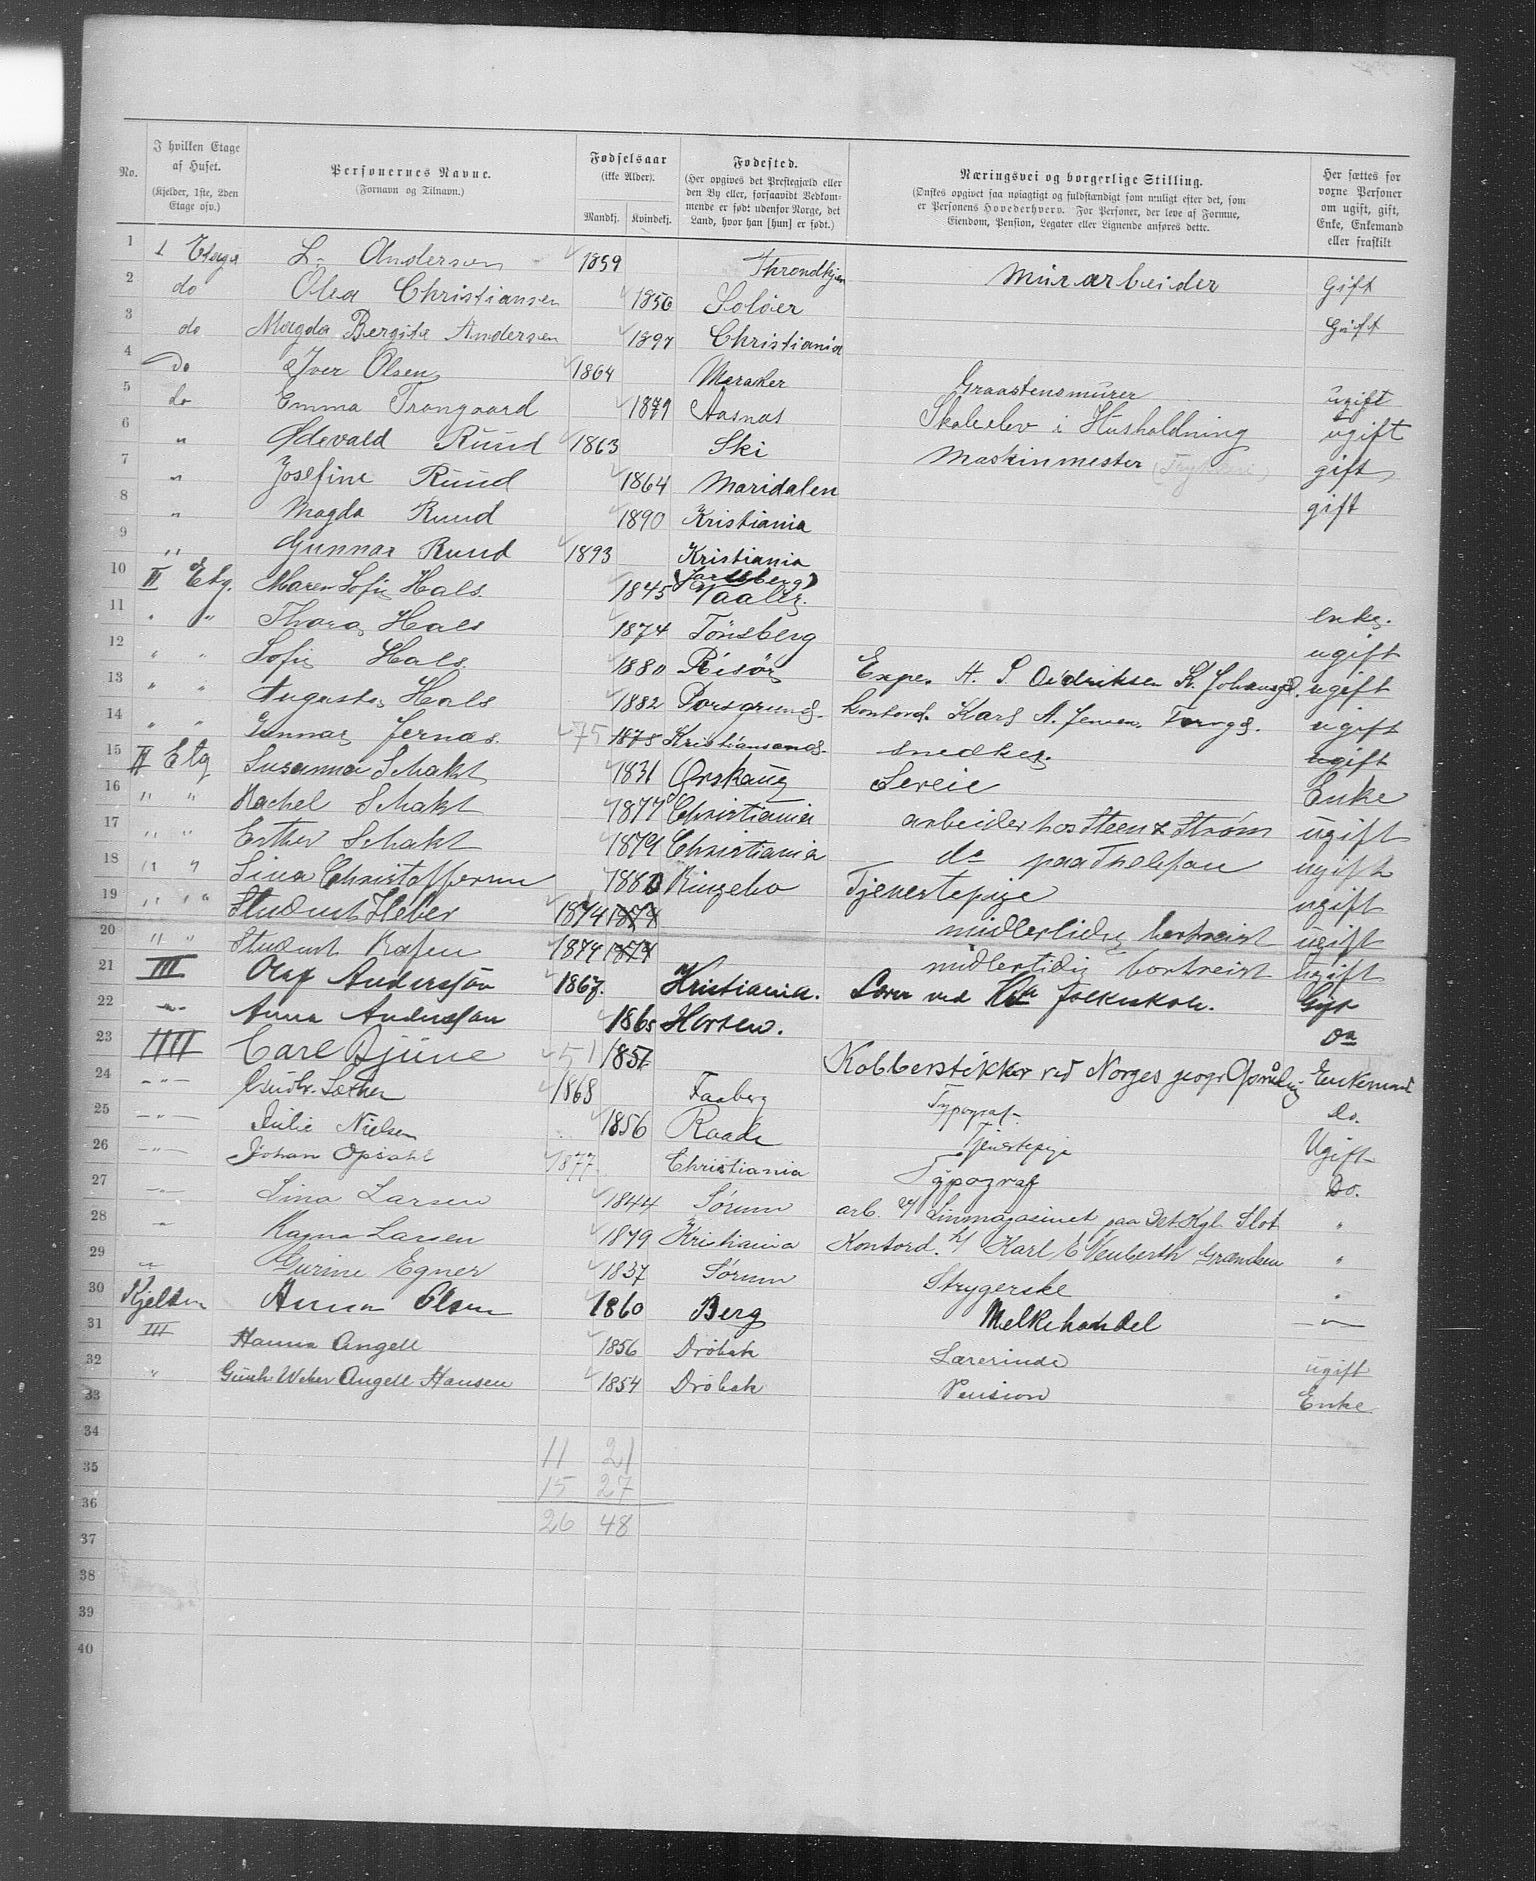 No.
I hvilken Etage af Huset.
(Kjelder, 1ste, 2den Etage osv.)
Personernes Navne.
(Fornavn og Tilnavn.)
Fødselsaar
(ikke Alder).
Mandkj. Kvindekj.
Fødested.
(Her opgives det Prestegjæld eller
den By eller, forsaavidt Vedkom-
mende er født udenfor Norge, det
Land, hvor han [hun] er født.)
Næringsvei og borgerlige Stilling.
(Ønskes opgivet saa nøiagtigt og fuldstændigt som muligt efter det, som
er Personens Hovederhverv. For Personer, der leve af Formue,
Eiendom, Pension, Legater eller Lignende anføres dette.
Her sættes for
voxne Personer
om ugift, gift,
Enke, Enkemand
eller fraskilt
1 1 Etage L. Andersen 1859 Throndhjem Murarbeider Gift
2 do Olea Christiansen 1856 Soløer Gift
3 do Magda Bergite Andersen 1897 Christiania
4 Do Iver Olsen 1864 Meraker Graastensmurer ugift
5 do Emma Trangaard 1879 Aasnas Skoleelev i Husholdning ugift
6 " Edevald Ruud 1863 Ski Maskinmester gift
7 " Josefine Ruud 1864 Maridalen gift
8 " Magda Ruud 1890 Kristiania
9 " Gunnar Ruud 1893 Kristiania
10 II Etg. Maren Sofie Hals. 1845 (Jarlsberg) Vaale. enke.
11 " " Thora Hals 1874 Tönsberg ugift
12 " " Sofie Hals 1880 Risör Exp. A. S. Didriksen K. Johansgd. ugift
13 " " Augusta Hals 1882 Porsgrund. Kontord. Karl A. Jensen Torvg. ugift
14 " " Gunnar Jernæs. 75 1875 Kristiansand. snedker. ugift
15 II Etg Susanna Schakt 1831 Ørskaug Leveie Enke
16 " " Rachel Schakt 1877 Christiania arbeider hos Steen & Strøm ugift
17 " " Esther Schakt 1879 Christiania do paa Thelefon ugift
18 " " Lina Christoffersen 1880 Ringebo Tjenestepige ugift
19 " " Student Heber 1874 1874 midlertidig bortreist ugift
20 " " Student Rafen 1874 1874 midlertidig bortreist ugift
21 III Olaf Anderssön 1867. Kristiania. Lærer ved Kra folkeskole. Gift
22 " Anna Anderssön 1865 Horten. Do
23 IIII Carl Bjune 51 1851 Kobberstikker ved Norges geogr Opmåling Enkemand
24 " Gudbr. Sæther 1868 Faaberg Typograf Do.
25 " Julie Nielsen 1856 Raade Tjenestepige Ugift
26 " Johan Opsahl 1877. Christiania Typograf Do.
27 " Lina Larsen 1844 Sørum arb. v/ Linmagasinet paa Det Kgl. Slot "
28 " Ragna Larsen 1879 Kristiania Kontord. h/ Karl E Neuberth Grændsen "
29 " Gurine Egner 1837 Sørum Strygerske "
30 Kjelder Anna Olsen 1860 Berg Melkehandel "
31 III Hanna Angell 1856 Dröbak Lærerinde ugift
32 " Weber Angell Hansen 1854 Dröbak Pension Enke
33
34
11 21
35
15 27
36
26 48
37
38
39
40